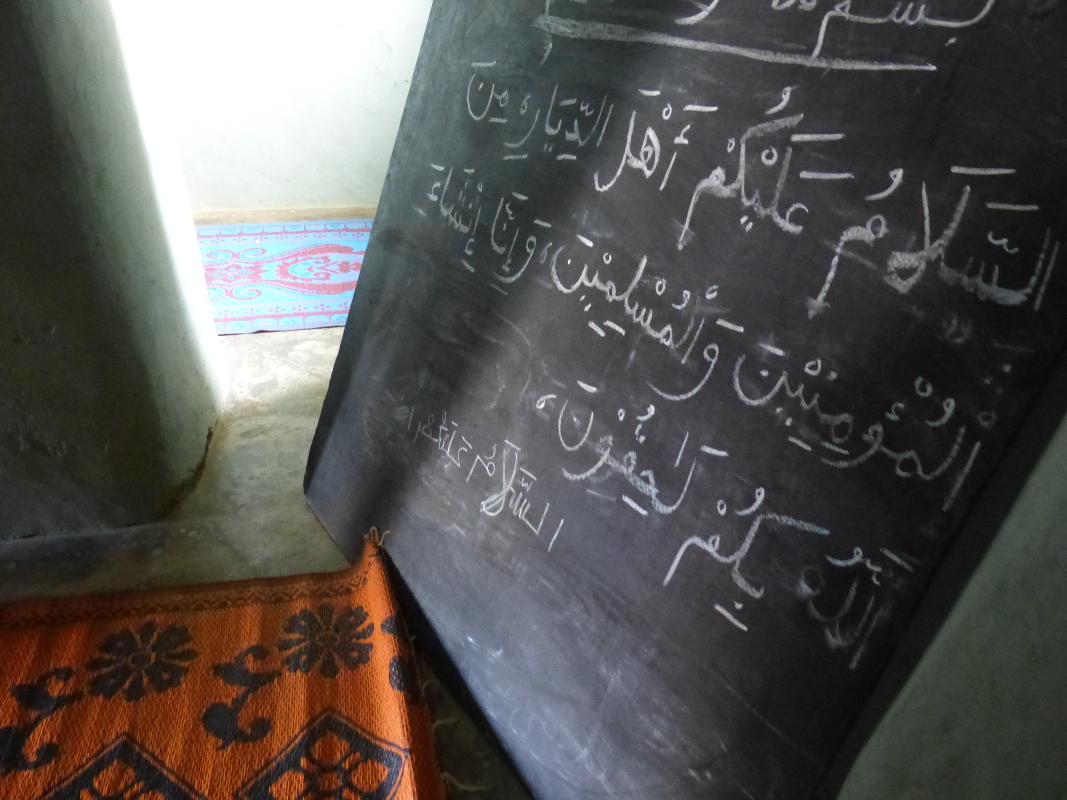 بسم الله
السَّلَامُ عَلَيْكُمْ أَهْلَ الدِّيَارِ، مِنَ
الْمُؤمِنِيْنَ وَالْمُسْلِمِيْنَ، وَإِنَّا إِنْشَاءَ
اللهُ بِكُمْ لَاحِقُوْنَ،
السَّلَامُ عَلَيْكُمْ